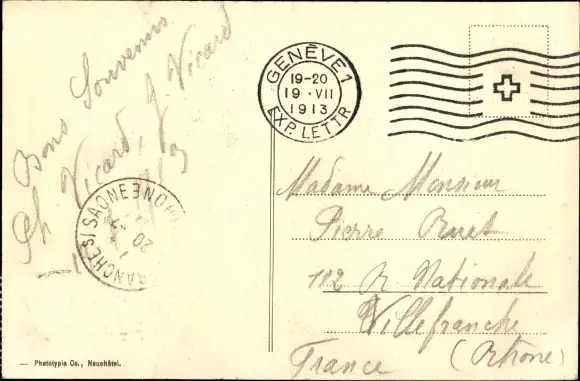 Bons Souvenirs
Ph Vicard, J Vicard
GENÈVE 1
19-20
19 · VII
1913
EXP. LETTR
FRANCHE S/ SAONE
20
RHONE
Madame Monsieur
Pierre
112 R Nationale
Villefranche
(Rhône)
France
— Phototypie Co., Neuchâtel.